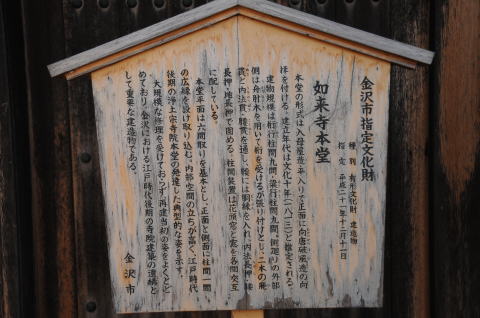 金沢市指定文化財
種別 有形文化財 建造物
指定 平成二十一年十二月十一日
如来寺本堂
本堂の形式は入母屋造平入りで正面に向唐破風造の向
拝を付ける。建立年代は文化十年(一八一三)と推定される。
建物規模は桁行柱間九間、梁行柱間九間、側廻りの外部
側は舟肘木を用いて桁を受けるが張り付けとし、二本の飛
貫と内法貫・腰貫を通し、腰には胴縁を入れ、内法長押・腰
長押・地長押で固める。柱間装置は花頭窓と窓を各間交互
に配している。
本堂平面は六間取りを基本とし、正面と側面に柱間一間
の広縁を設け取り込む。内部空間の立ちが高く、江戸時代
後期の浄土宗寺院本堂の発達した典型的な姿を示す。
大規模な修理を受けておらず、再建当初の姿をよくとど
めており、金沢における江戸時代後期の寺院建築の遺構と
して重要な建造物である。
金沢市